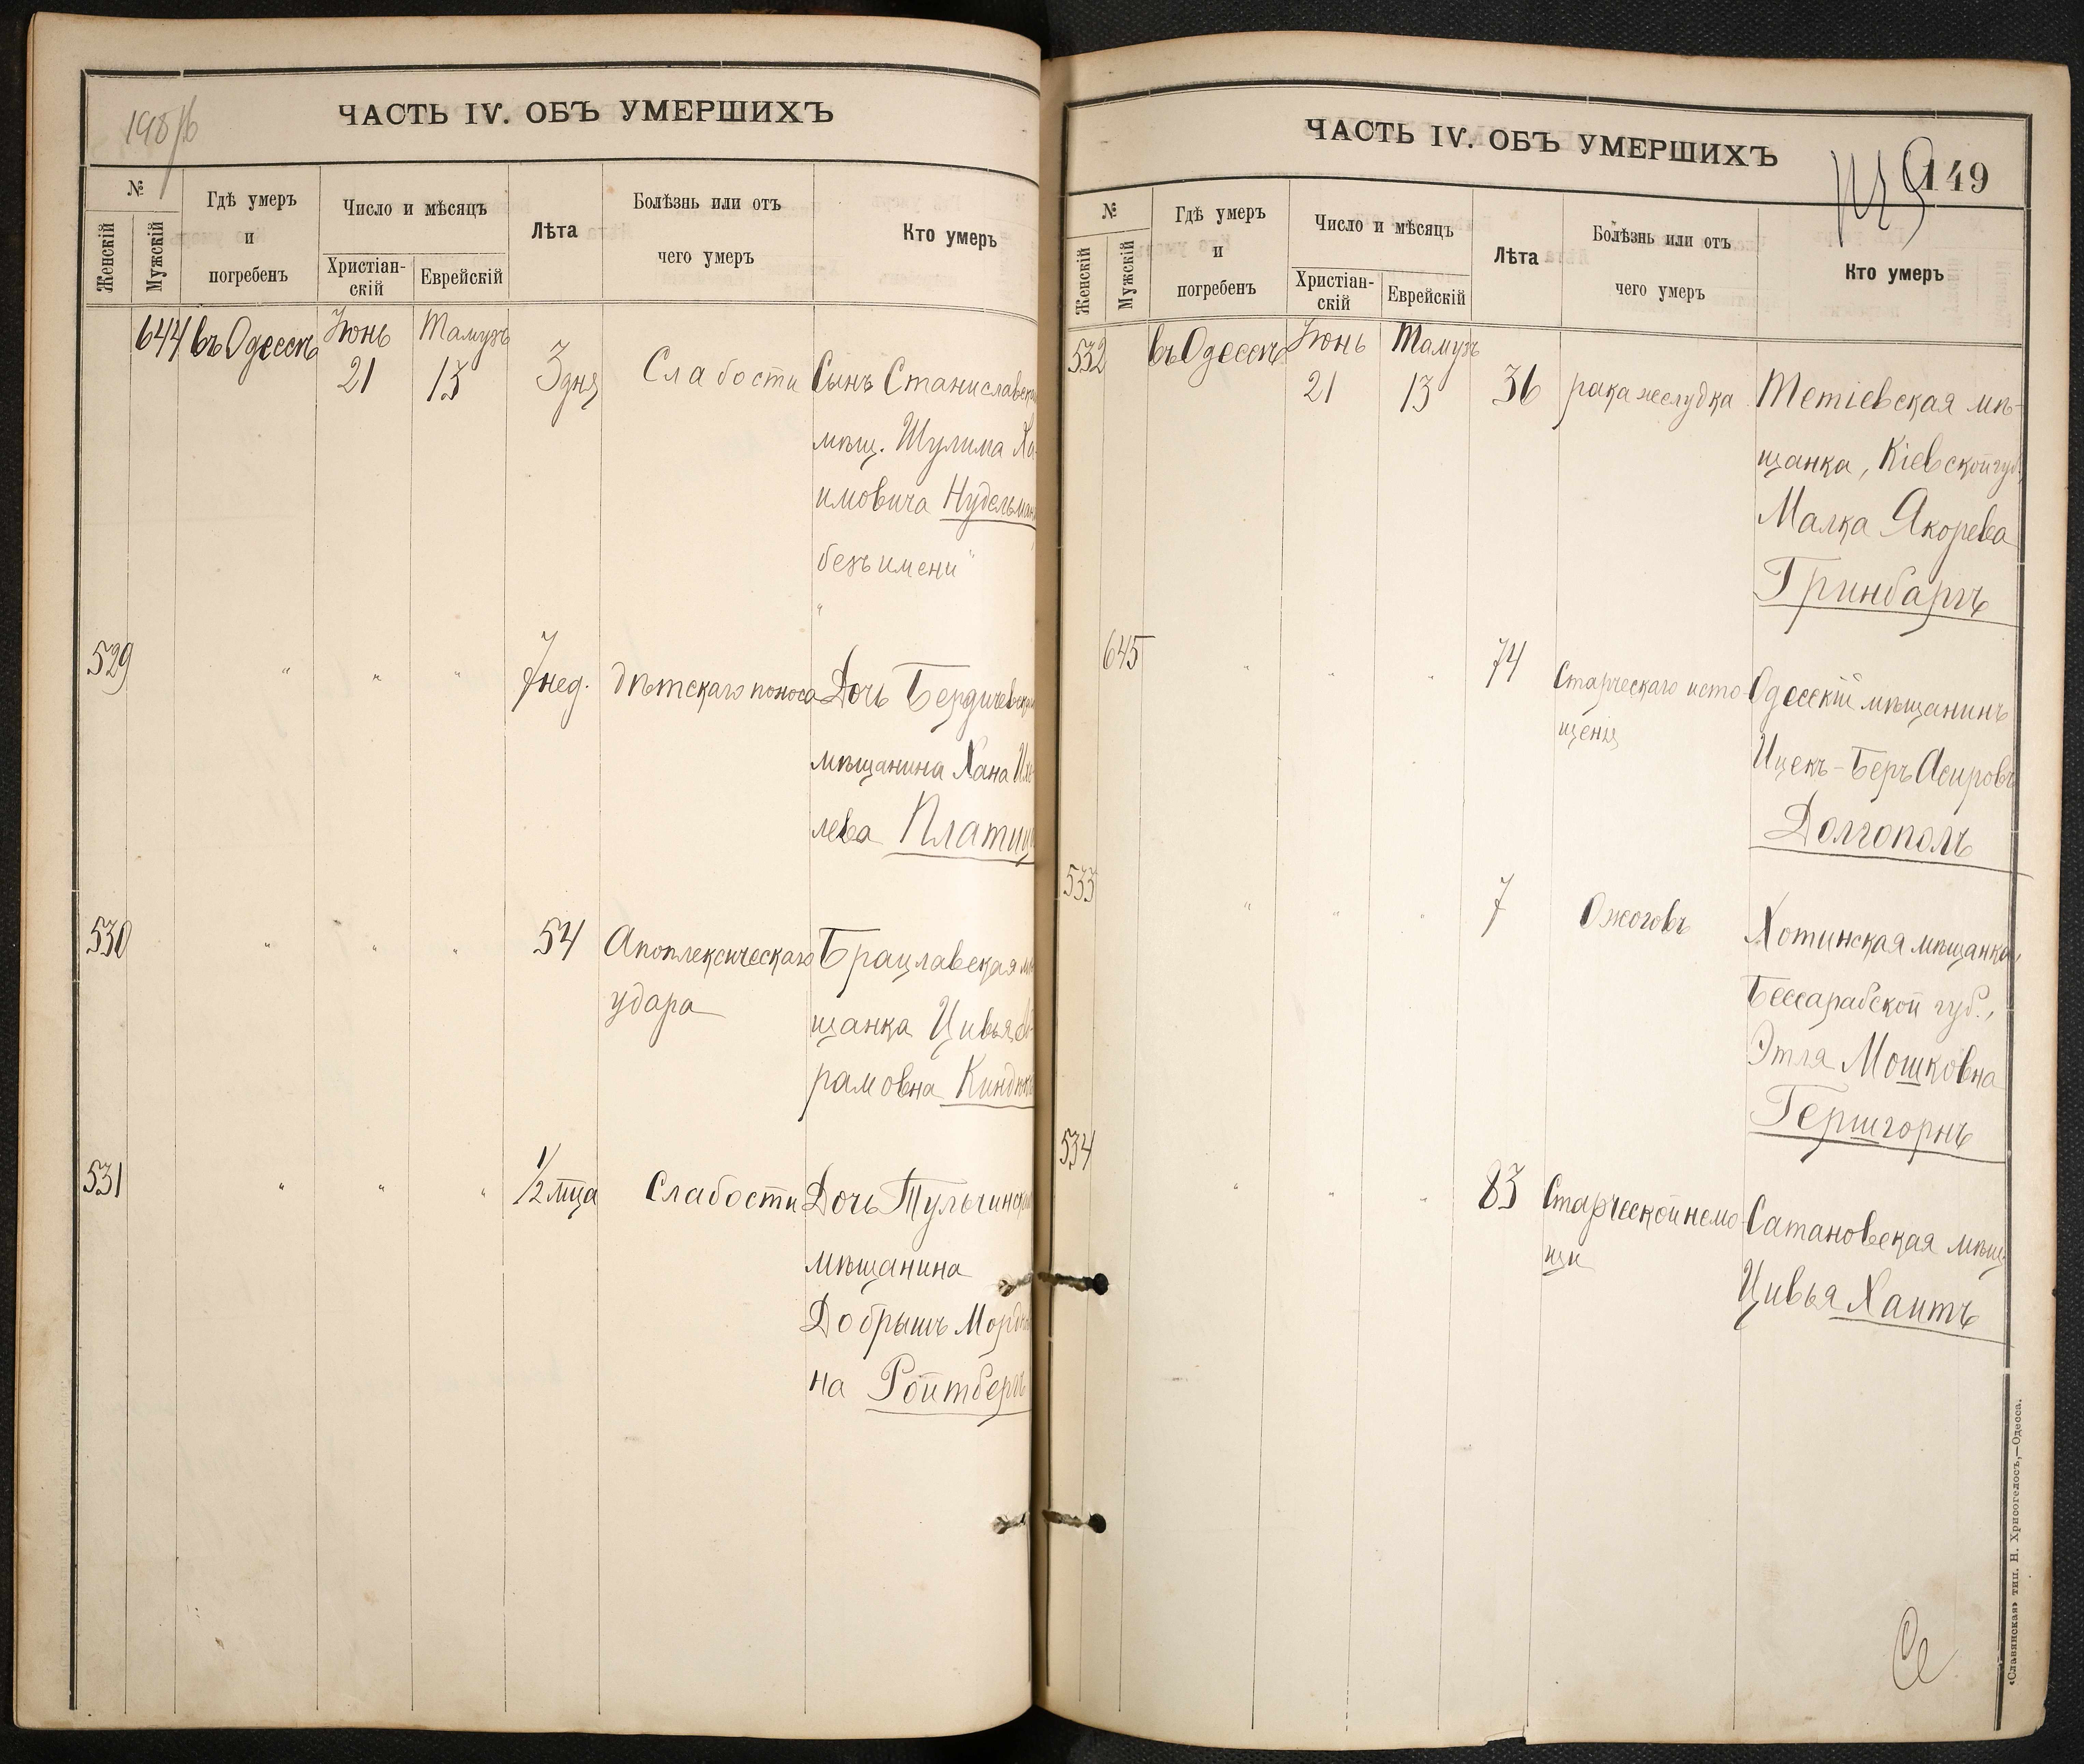 ЧАСТЬ IV. ОБЪ УМЕРШИХЪ
№
Женскій
Мужскій
Гдѣ умеръ
и
погребенъ
Число и мѣсяцъ
Христіан-
скій
Еврейскій
Лѣта
Болѣзнь или отъ
чего умеръ
Кто умеръ
644 въ Одессѣ Іюнь 21 Тамузъ 13 3 дня Слабости Сынъ Станиславск
мѣщ. Шулима Ха-
имовича Нудельман
безъ имени
529 " " " 7 нед. дѣтскаго поноса Дочь Бердичевск
мѣщанина Хана
лева
530 " " " 54 Апоплексическаго Брацлавская мѣ
удара щанка Цивья Аб-
рамовна
531 " " " 1/2 м-ца Слабости Дочь Тульчинск
мѣщанина
Добрышъ Морд
на Ройтбергъ
ЧАСТЬ IV. ОБЪ УМЕРШИХЪ
149
№
Женскій
Мужскій
Гдѣ умеръ
и
погребенъ
Число и мѣсяцъ
Христіан-
скій
Еврейскій
Лѣта
Болѣзнь или отъ
чего умеръ
Кто умеръ
532 въ Одессѣ Іюнь 21 Тамузъ 13 36 рака желудка Тетіевская мѣ-
щанка, Кіевской губ.,
Малка Якорева
Гринбаргъ
645 " " " 74 Старческаго исто- Одесскій мѣщанинъ
щенія Ицекъ-Беръ Асировъ
Долгополъ
533 " " " 7 Ожоговъ Хотинская мѣщанка,
Бессарабской губ.,
Этля Мошковна
Гершгорнъ
534 " " " 83 Старческой немо- Сатановская мѣщ.
щи Цивья Хаитъ
«Славянская» тип. Н. Хрисогелосъ,—Одесса.